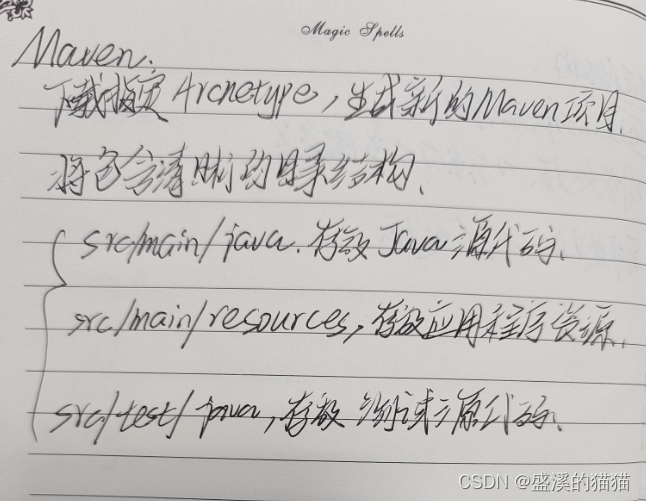 Magic Spells
Maven.
下载指定Archetype,生成新的Maven项目、
将包含清晰的目录结构、
src/main/java.存放Java源代码、
src/main/resources,存放应用程序资源、
src/test/java,存放测试源代码、
CSDN @盛溪的猫猫